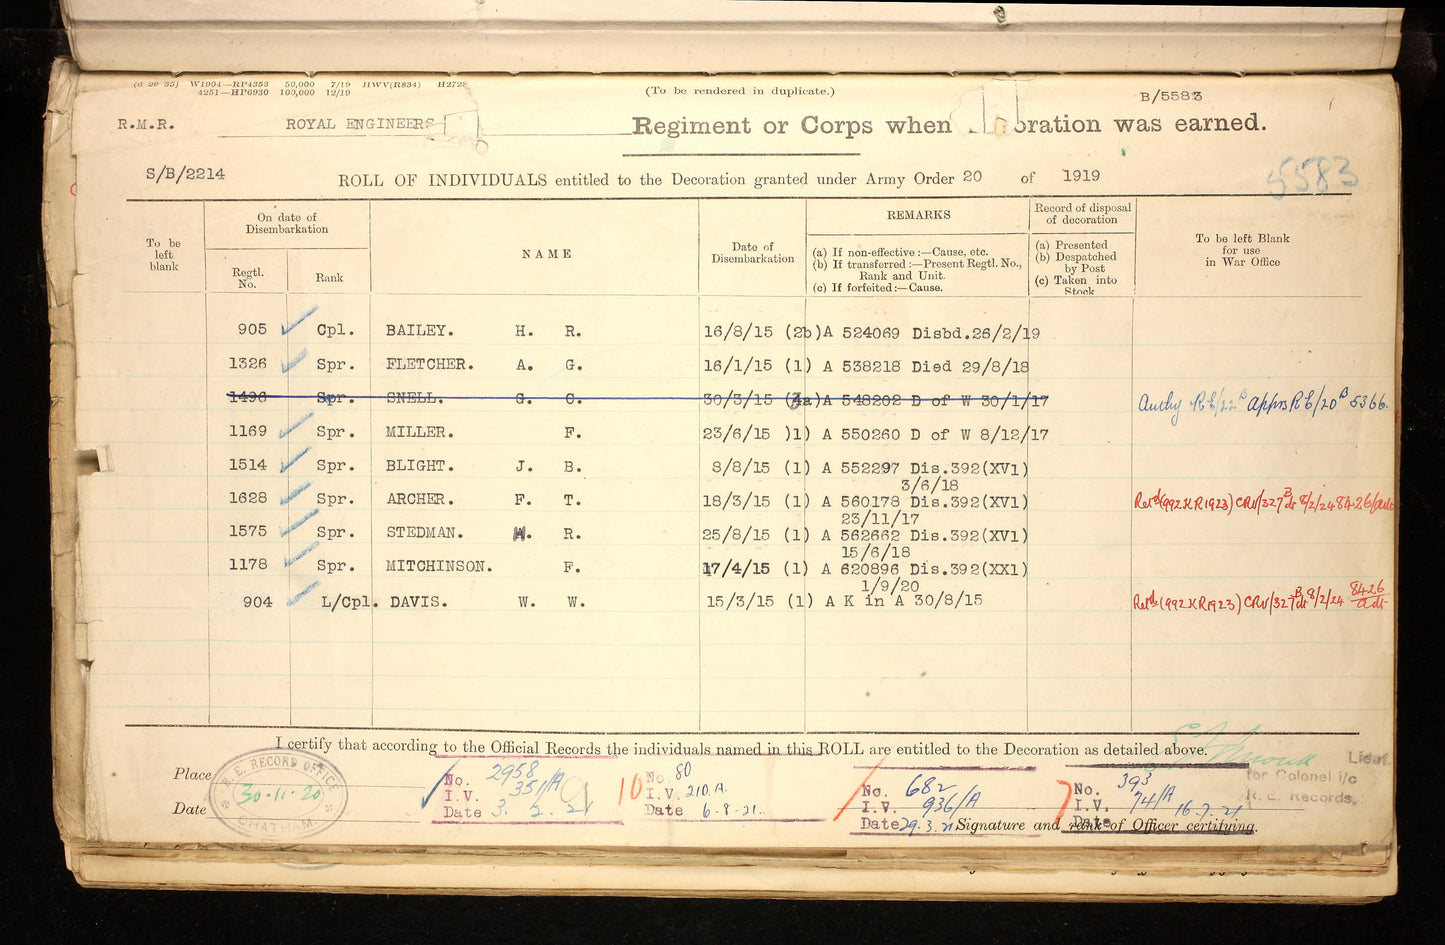 (6 20 35) W1904—RP4353 50,000 7/19 HWV(R834) H2728
4251—HP6930 100,000 12/19
(To be rendered in duplicate.)
B/5583
R.M.R. ROYAL ENGINEERS Regiment or Corps when oration was earned.
S/B/2214 ROLL OF INDIVIDUALS entitled to the Decoration granted under Army Order 20 of 1919
5583
To be left blank
On date of Disembarkation
Regtl. No.
Rank
NAME
Date of Disembarkation
REMARKS
(a) If non-effective:—Cause, etc.
(b) If transferred:—Present Regtl. No., Rank and Unit.
(c) If forfeited:—Cause.
Record of disposal of decoration
(a) Presented
(b) Despatched by Post
(c) Taken into Stock
To be left Blank for use in War Office
905 Cpl. BAILEY. H. R. 16/8/15 (2b)A 524069 Disbd.26/2/19
1326 Spr. FLETCHER. A. G. 16/1/15 (1) A 538218 Died 29/8/18
1496 Spr. SNELL. G. C. 30/3/15 (3a)A 548202 D of W 30/1/17 Authy RE/22B Apprs RE/20B 5366
1169 Spr. MILLER. F. 23/6/15 )1) A 550260 D of W 8/12/17
1514 Spr. BLIGHT. J. B. 8/8/15 (1) A 552297 Dis.392(XV1)
3/6/18
1628 Spr. ARCHER. F. T. 18/3/15 (1) A 560178 Dis.392(XV1) Retd (992 KR 1923) CRV/327B dt 8/2/24 8426/adt
23/11/17
1575 Spr. STEDMAN. W. R. 25/8/15 (1) A 562662 Dis.392(XV1)
15/6/18
1178 Spr. MITCHINSON. F. 17/4/15 (1) A 620896 Dis.392(XX1)
1/9/20
904 L/Cpl. DAVIS. W. W. 15/3/15 (1) A K in A 30/8/15 Retd (992 KR 1923) CRV/327B dt 8/2/24 8426/adt
I certify that according to the Official Records the individuals named in this ROLL are entitled to the Decoration as detailed above.
Place
Date
R. E. RECORD OFFICE
30.11.20
CHATHAM.
No. 2958
I.V. 351/A
Date 3.2.21
10
No. 80
I.V. 210.A.
Date 6.8.21.
No. 682
I.V. 936/A
Date 29.3.21
No. 393
I.V. 74/A
Date 16.7.21
Lieut.
for Colonel i/c
R. E. Records.
Signature and rank of Officer certifying.